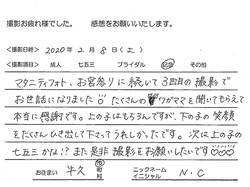 撮影お疲れ様でした。 感想をお願いいたします。
<撮影日時> 2020年 2月 8日(土)
<撮影項目> 成人 七五三 ブライダル 記念 その他
マタニティフォト、お宮参りに続いて3回目の撮影で
お世話になりました たくさんのワガママを聞いてもらえて
本当に感謝です。上の子はもちろんですが、下の子の笑顔
をたくさんひき出して下さってうれしかったです。次は上の子の
七五三かな!?また是非撮影をお願いしたいです
お住まい 牛久 市 ニックネーム イニシャル N.C